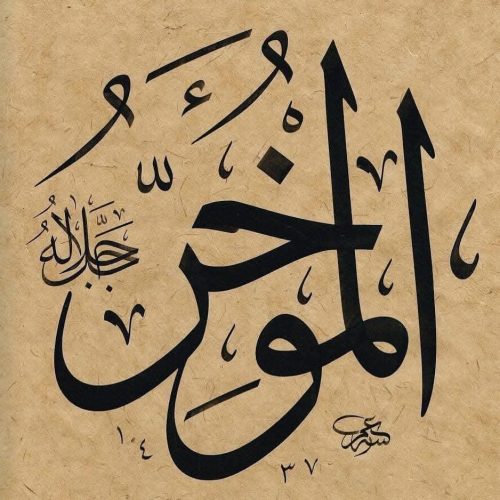 المؤخر
جل جلاله
١٤٣٧